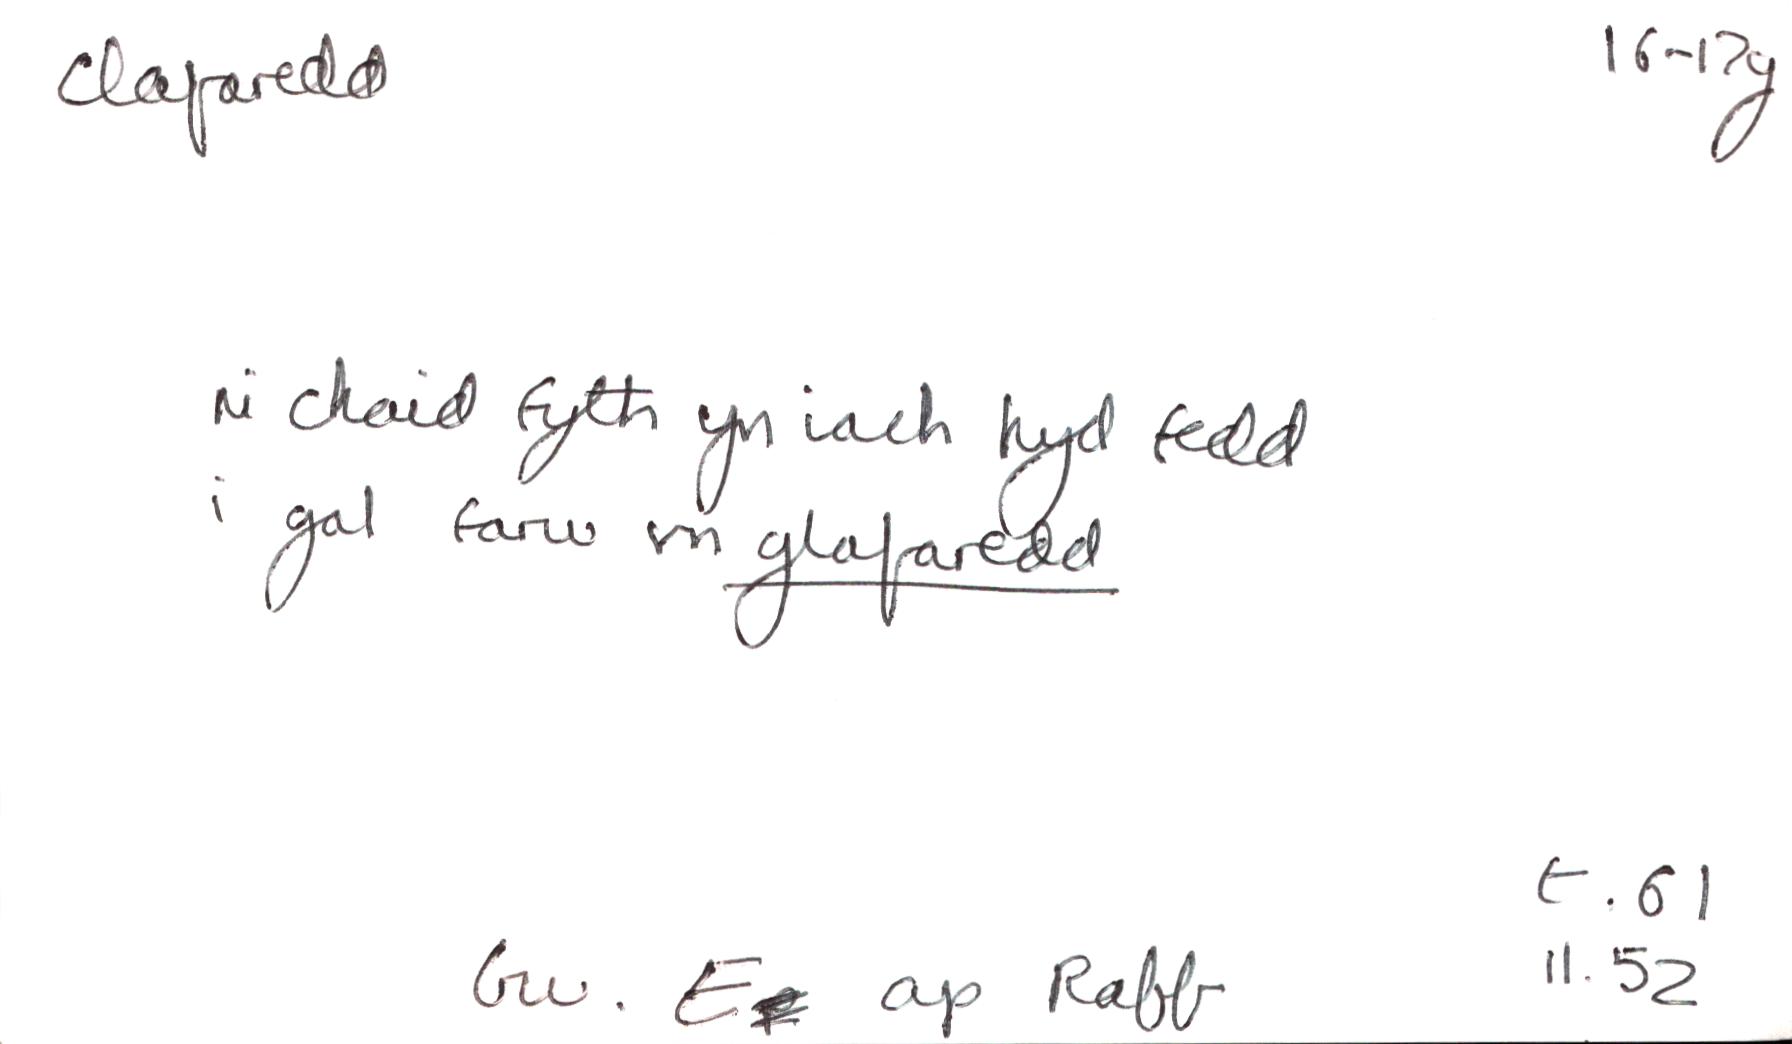 Clafaredd 16-17g
ni chaid fyth yn iach hyd fedd
i gal farw vn glafaredd
t. 61
Gw. E ap Raff ll. 52